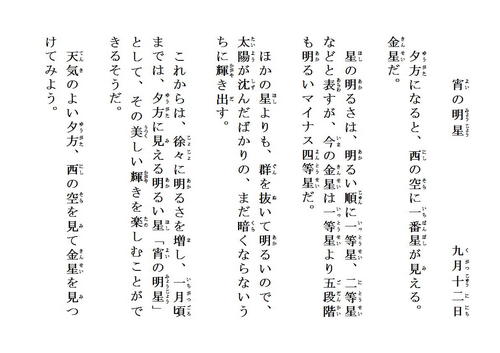 宵の明星　九月十二日
夕方になると、西の空に一番星が見える。
金星だ。
星の明るさは、明るい順に一等星、二等星
などと表すが、今の金星は一等星より五段階
も明るいマイナス四等星だ。
ほかの星よりも、群を抜いて明るいので、
太陽が沈んだばかりの、まだ暗くならないう
ちに輝き出す。
これからは、徐々に明るさを増し、一月頃
までは、夕方に見える明るい星「宵の明星」
として、その美しい輝きを楽しむことがで
きるそうだ。
天気のよい夕方、西の空を見て金星を見つ
けてみよう。